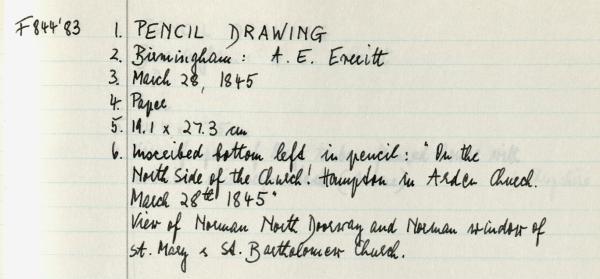 F844'83 1. PENCIL DRAWING
2. Birmingham: A. E. Everitt
3. March 28, 1845
4. Paper
5. 19.1 x 27.3 cm
6. Inscribed bottom left in pencil: "On the
North Side of the Church! Hampton in Arden Church.
March 28th 1845"
View of Norman North Doorway and Norman window of
St. Mary & St. Bartholomew Church.